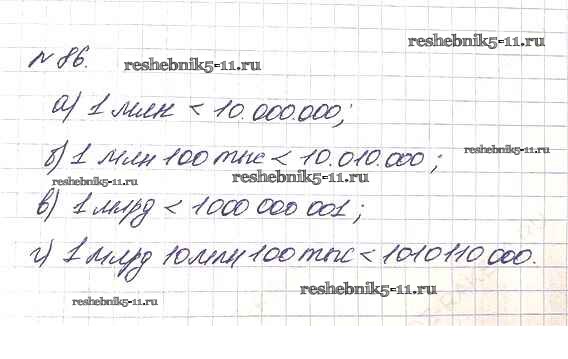 reshebnik5-11.ru
№ 86.
reshebnik5-11.ru
а) 1 млн < 10.000.000;
б) 1 млн 100 тыс < 10.010.000;
reshebnik5-11.ru
reshebnik5-11.ru
reshebnik5-11.ru
в) 1 млрд < 1000 000 001;
г) 1 млрд 10 млн 100 тыс < 1010110 000.
reshebnik5-11.ru
reshebnik5-11.ru